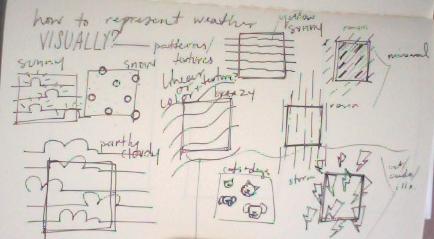 how to represent weather
VISUALLY?
patterns/
textures
yellow
sunny
sunny
snow
linear
or + texture
color
breezy
rain
minimal
partly
cloudy
cats + dogs
storm